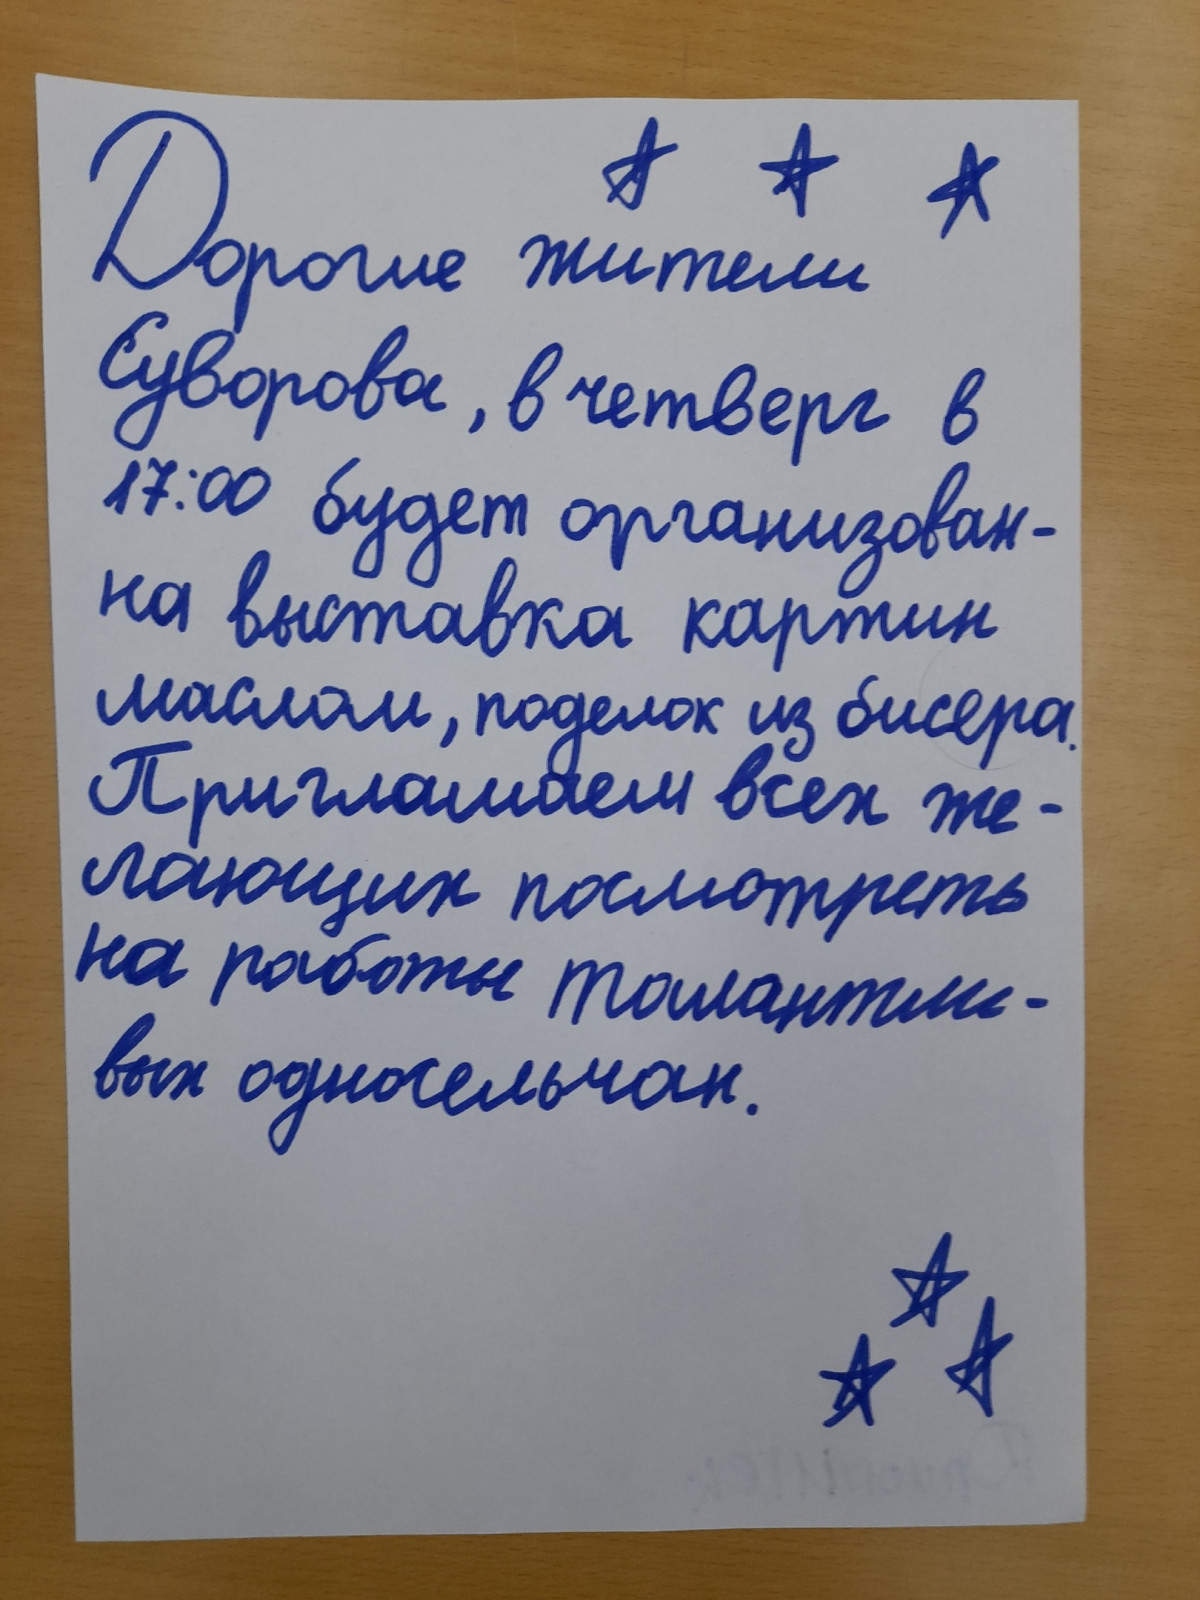 Дорогие жители
Суворова, в четверг в
17:00 будет организован-
на выставка картин
маслом, поделок из бисера.
Приглашаем всех же-
лающих посмотреть
на работы талантли-
вых односельчан.